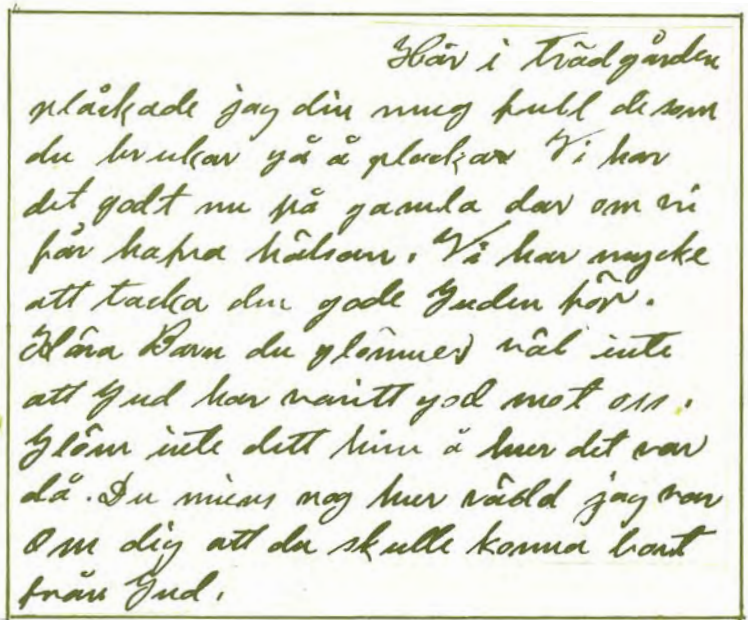 Här i trädgården
plåckade jag din mug full de som
du brukar gå å plockar Vi har
det godt nu på gamla dar om vi
får hafva hälsan. Vi har mycke
att tacka den gode Guden för.
Kära Barn du glömmer väl inte
att Gud har varitt god mot oss.
Glöm inte dett hem å hur det var
då. Du mins nog hur rädd jag var
Om dig att du skulle komma bort
från Gud.